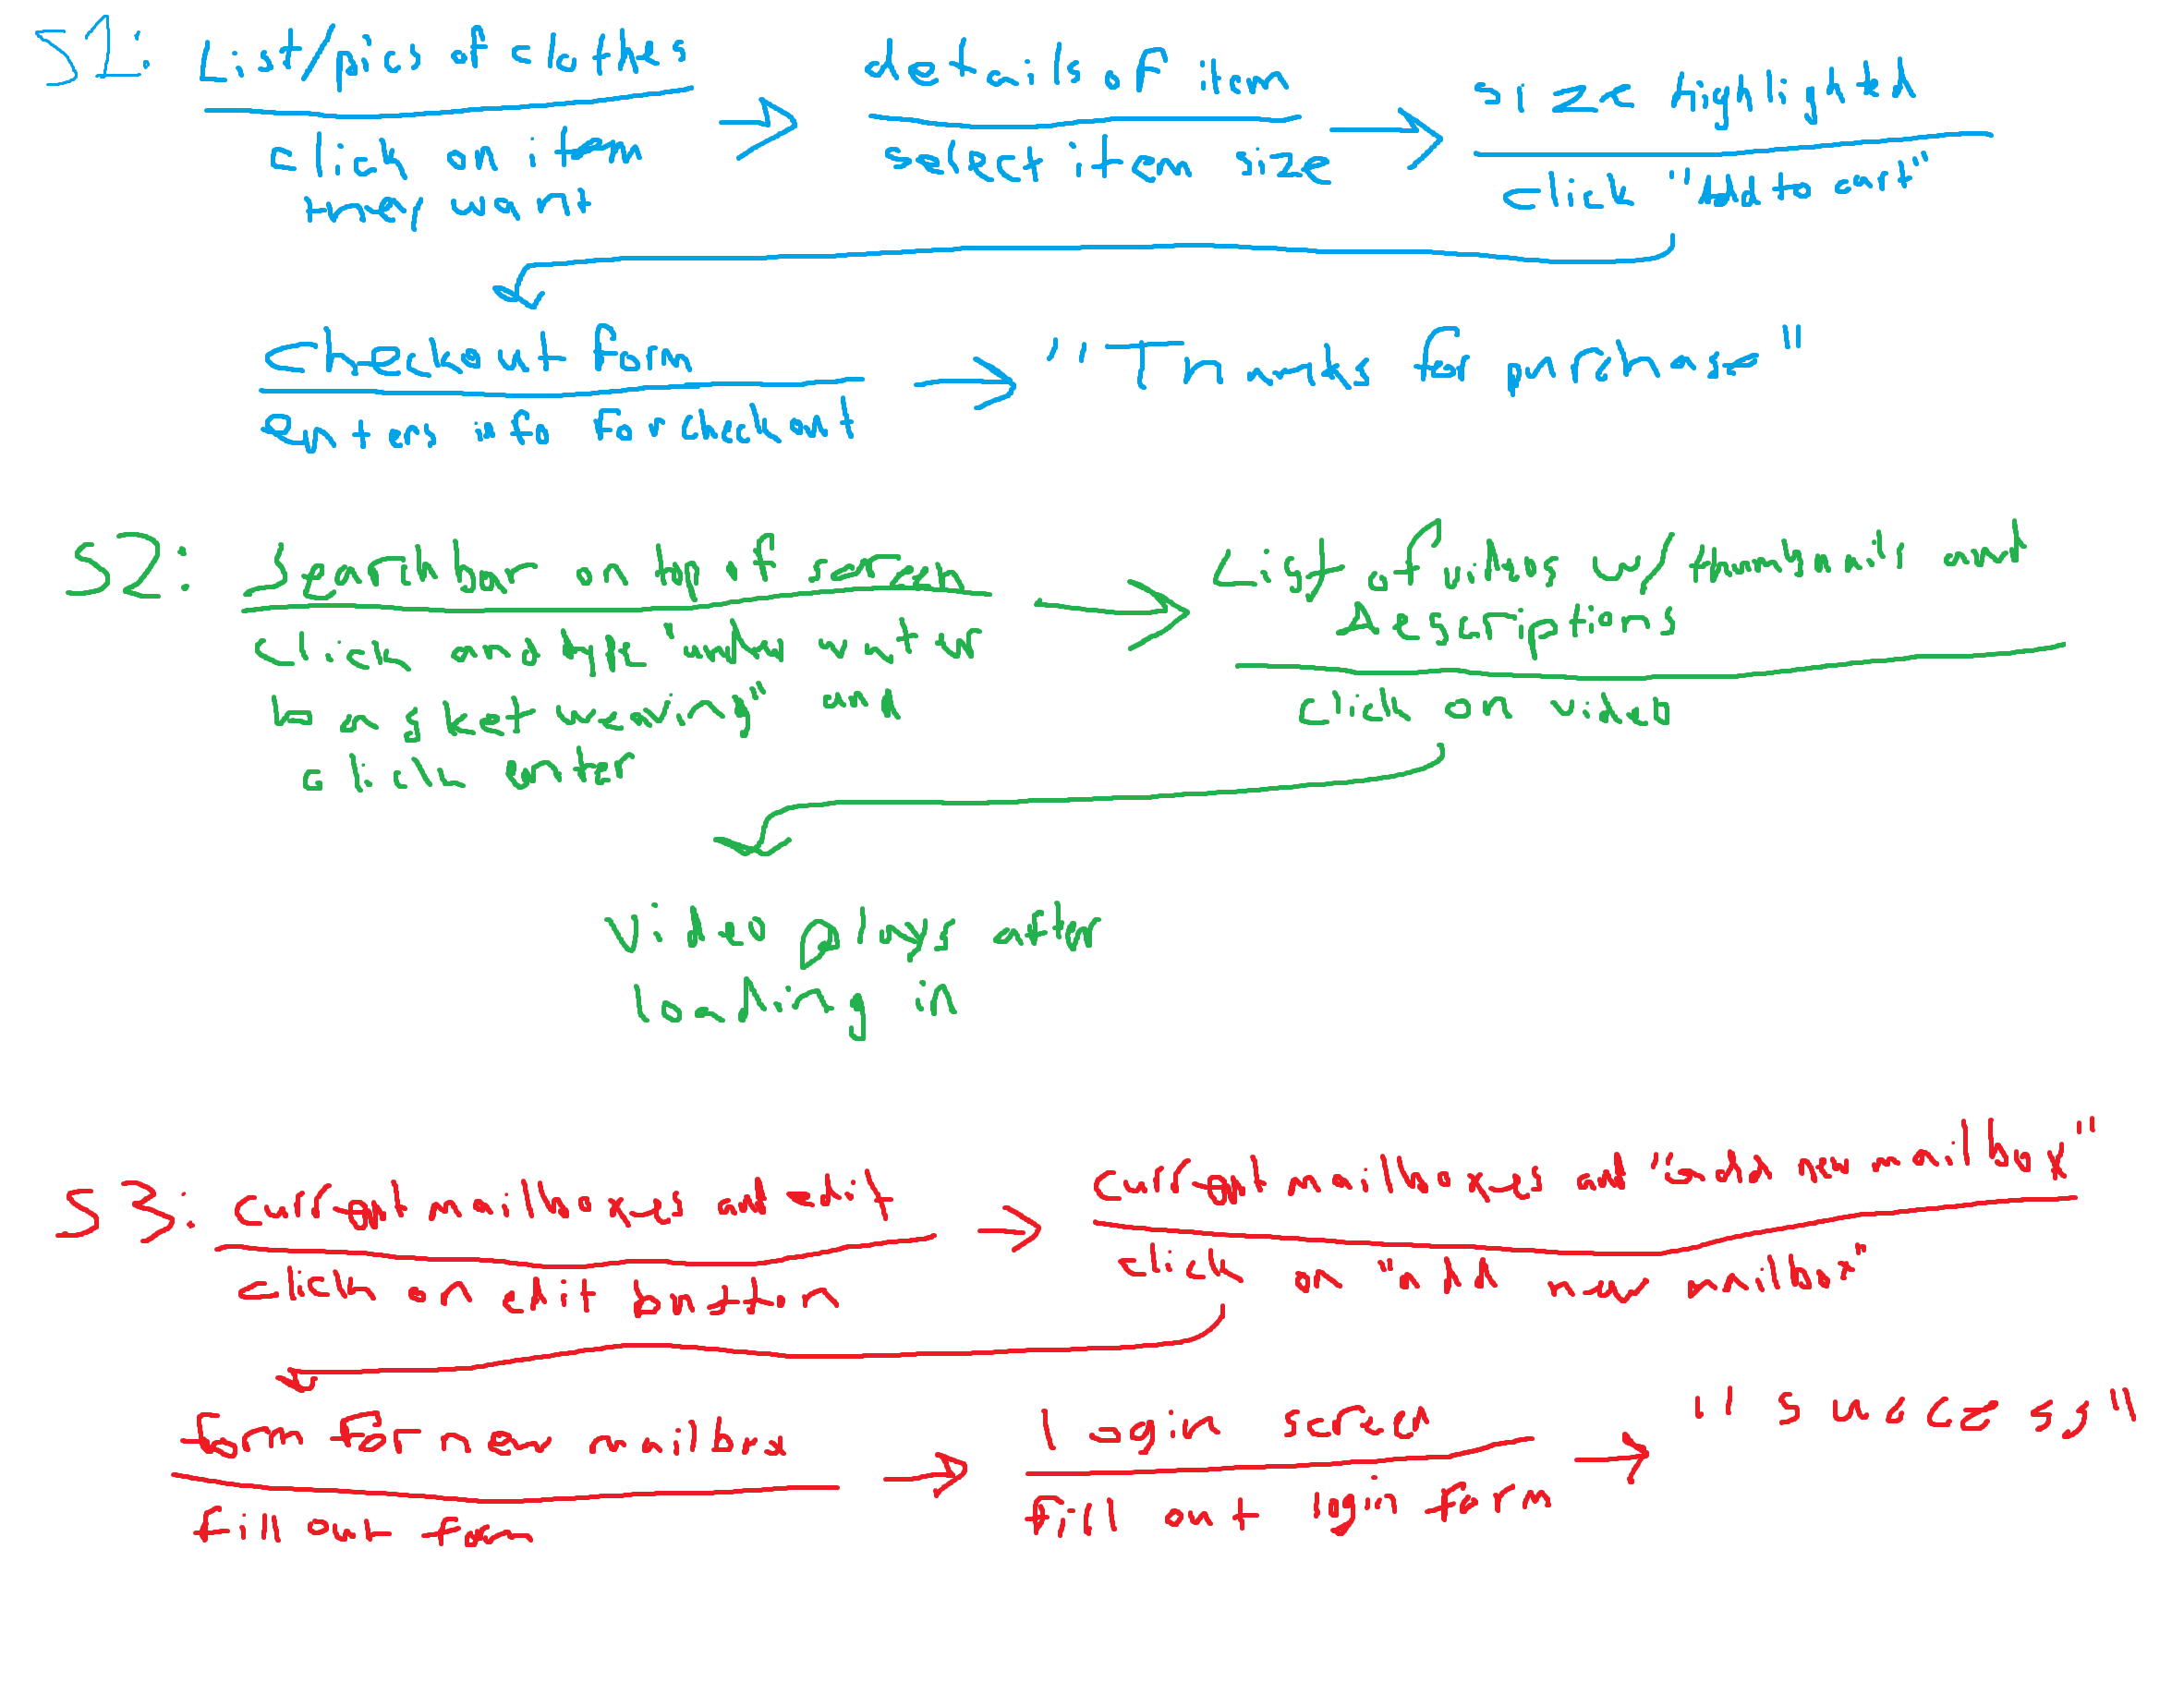 S1: List/pics of clothes
click on item
they want
details of item
select item size
size highlighted
click "Add to cart"
Checkout form
enters info for checkout
"Thanks for purchase"
S2: Searchbar on top of screen
click and type "underwater
basket weaving" and
click enter
List of videos w/ thumbnails and
Descriptions
click on video
Video plays after
loading in
S3: current mailboxes and edit
click on edit button
current mailboxes and "add new mailbox"
click on "add new mailbox"
form for new mailbox
fill out form
Login screen
fill out login form
"success"